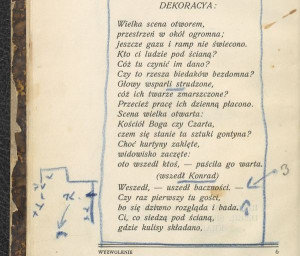 DEKORACYA:
Wielka scena otworem,
przestrzeń w okół ogromna;
jeszcze gazu i ramp nie świecono.
Kto ci ludzie pod ścianą?
Cóż tu czynić im dano?
Czy to rzesza biedaków bezdomna?
Głowy wsparli strudzone,
cóż ich twarze zmarszczone?
Przecież pracę ich dzienną płacono.
Scena wielka otwarta:
Kościół Boga czy Czarta,
czem się stanie ta sztuki gontyna?
Choć kurtyny zaklęte,
widowisko zaczęte:
oto wszedł ktoś, — puściła go warta.
(wszedł Konrad)
Wszedł, — uszedł baczności. —
3
Czy raz pierwszy tu gości,
bo się dziwno rozgląda i bada.
Ci, co siedzą pod ścianą,
gdzie kulisy składano,
WYZWOLENIE